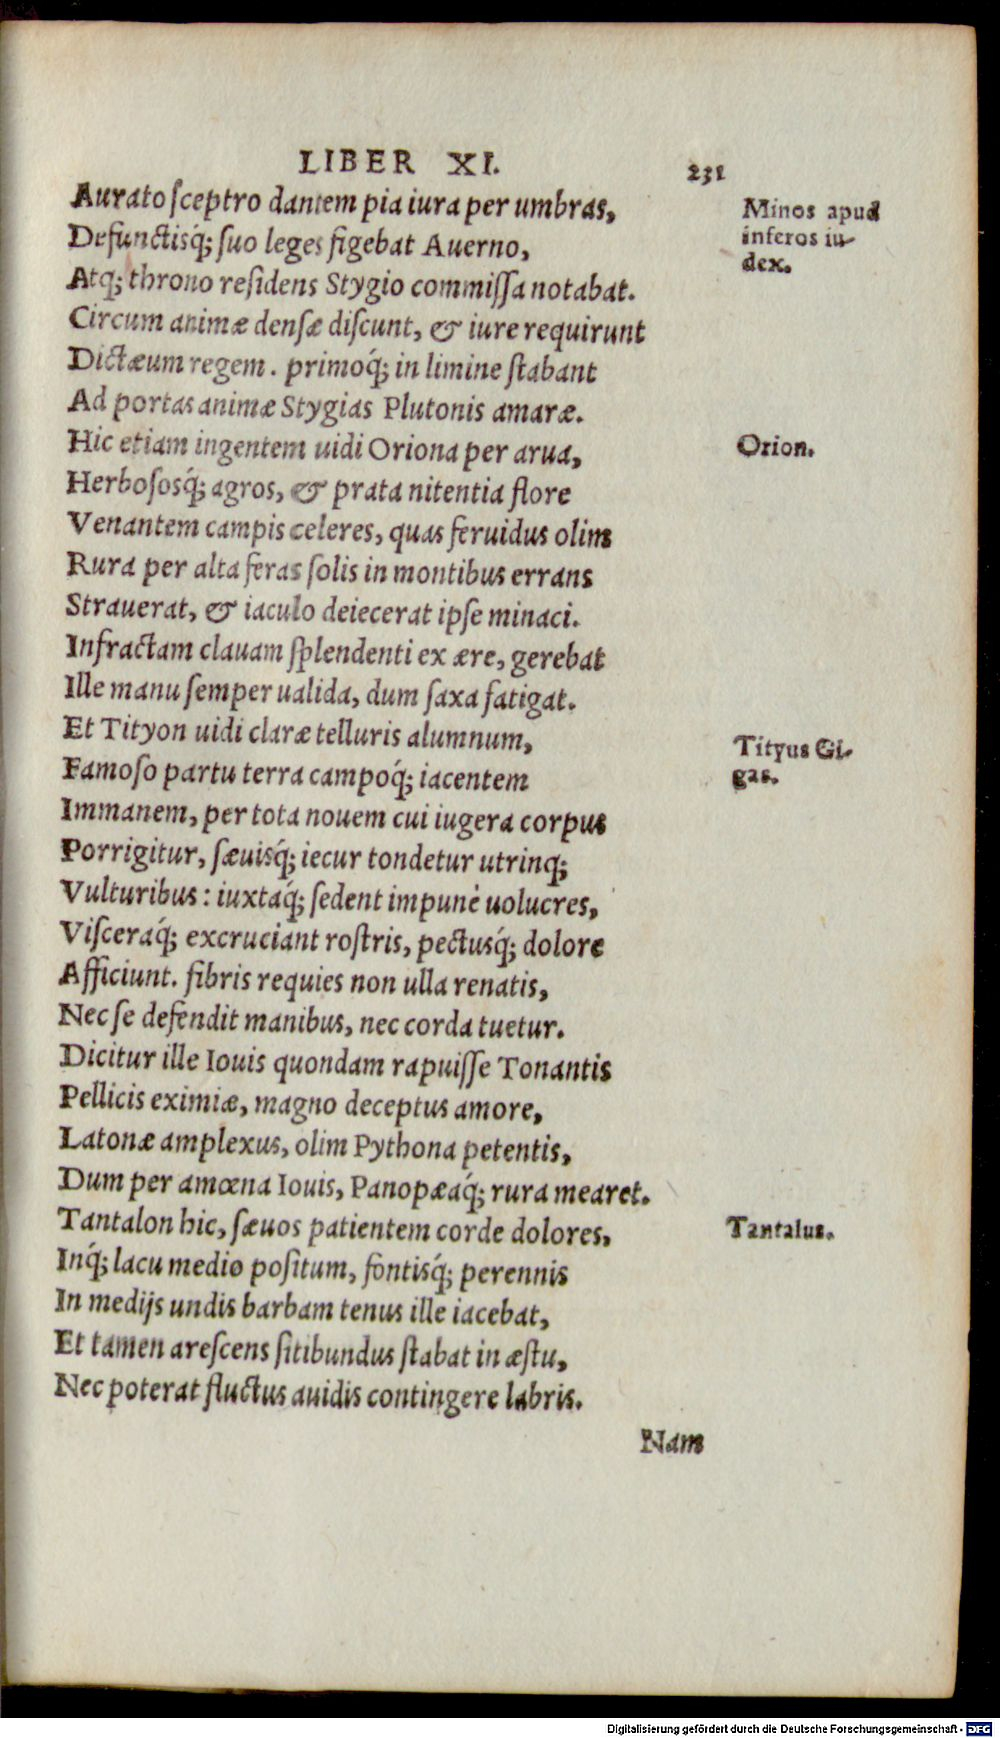 LIBER XI. 231
Aurato ſceptro dantem pia iura per umbras,
Minos apud
inferos iu-
dex.
Defunctisq́; ſuo leges figebat Auerno,
Atq; throno reſidens Stygio commiſſa notabat.
Circum animæ denſæ diſcunt, & iure requirunt
Dictæum regem. primoq́; in limine ſtabant
Ad portas animæ Stygias Plutonis amaræ.
Hic etiam ingentem uidi Oriona per arua,
Orion.
Herboſosq́; agros, & prata nitentia flore
Venantem campis celeres, quas feruidus olim
Rura per alta feras ſolis in montibus errans
Strauerat, & iaculo deiecerat ipſe minaci.
Infractam clauam ſplendenti ex ære, gerebat
Ille manu ſemper ualida, dum ſaxa fatigat.
Et Tityon uidi claræ telluris alumnum,
Tityus Gi-
gas.
Famoſo partu terra campoq́; iacentem
Immanem, per tota nouem cui iugera corpus
Porrigitur, ſæuisq́; iecur tondetur utrinq;
Vulturibus: iuxtaq́; ſedent impunè uolucres,
Viſceraq́; excruciant roſtris, pectusq́; dolore
Afficiunt. fibris requies non ulla renatis,
Nec ſe defendit manibus, nec corda tuetur.
Dicitur ille Iouis quondam rapuiſſe Tonantis
Pellicis eximiæ, magno deceptus amore,
Latonæ amplexus, olim Pythona petentis,
Dum per amœna Iouis, Panopæaq́; rura mearet.
Tantalon hic, ſæuos patientem corde dolores,
Tantalus.
Inq́; lacu medio poſitum, fontisq́; perennis
In medijs undis barbam tenus ille iacebat,
Et tamen areſcens ſitibundus ſtabat in æſtu,
Nec poterat fluctus auidis contingere labris.
Nam
Digitalisierung gefördert durch die Deutsche Forschungsgemeinschaft - DFG